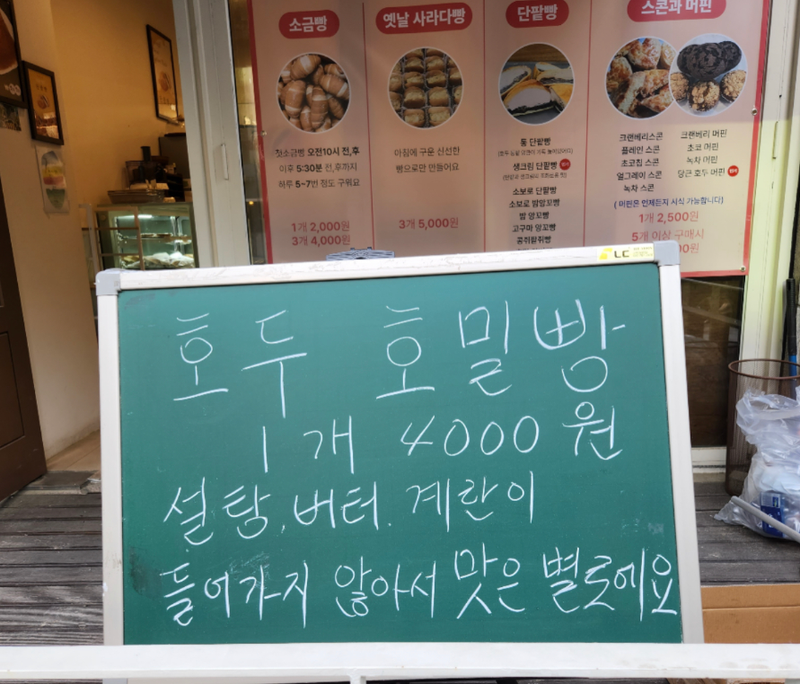 소금빵
옛날 사라다빵
단팥빵
스콘과 머핀
첫소금빵 오전10시 전,후
이후 5:30분 전,후까지
하루 5~7번 정도 구워요
1개 2,000원
3개 4,000원
아침에 구운 신선한
빵으로만 만들어요
3개 5,000원
통 단팥빵
생크림 단팥빵
소보로 단팥빵
소보로 밤앙꼬빵
밤 앙꼬빵
고구마 앙꼬빵
크랜베리스콘
플레인 스콘
초코칩 스콘
얼그레이 스콘
녹차 스콘
크랜베리 머핀
초코 머핀
녹차 머핀
당근 호두 머핀
( 머핀은 언제든지 시식 가능합니다)
1개 2,500원
5개 이상 구매시
LC
호두 호밀빵
1개 4000원
설탕, 버터, 계란이
들어가지 않아서 맛은 별로에요